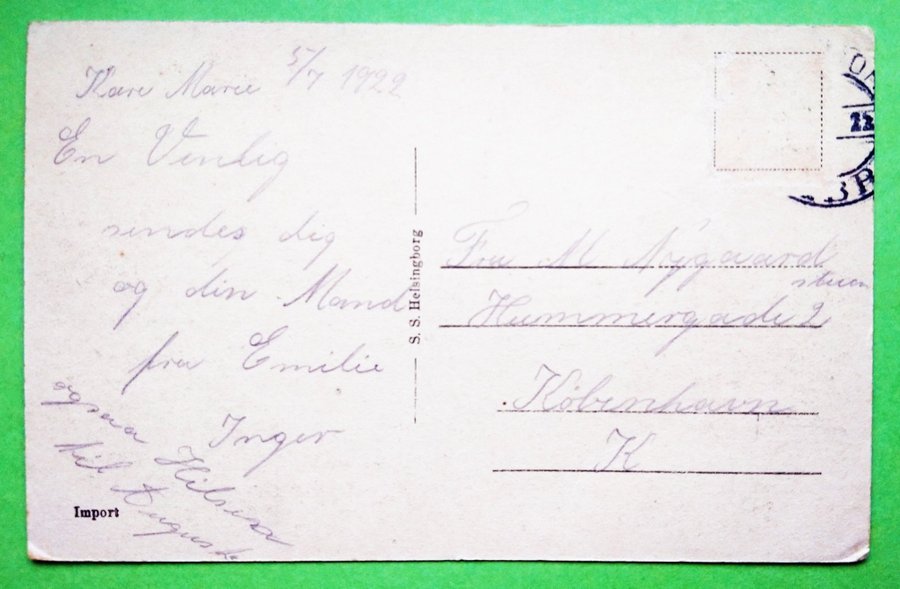 5/7 1922
Kære Marie
En Venlig
sendes dig
og din Mand
fra Emilie
Inger
ogsaa Hilsen
til August
Import
S. S. Helsingborg
Fru M Nygaard
stuen
Hummergade 2
København
K
22